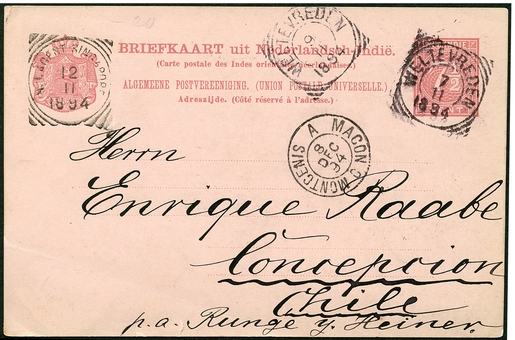 BRIEFKAART uit Nederlandsch-Indië.
(Carte postale des Indes orientales néerlandaises.)
ALGEMEENE POSTVEREENIGING. (UNION POSTALE UNIVERSELLE.)
Adreszijde. (Côté réservé à l'adresse.)
N.I. AGENT SINGAPORE
12
11
1894
WELTEVREDEN
9
1894
WELTEVREDEN
7
11
1894
MACON A MONTCENIS A
8
DEC
94
Herrn
Enrique Raabe
Concepcion
Chile
p.a. Runge y Heiner.